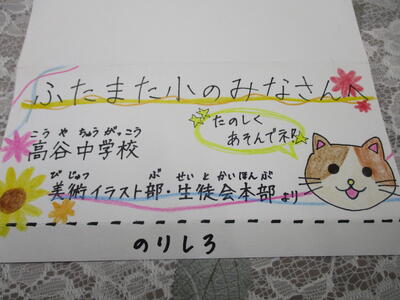 ふたまた小のみなさんへ
たのしく
あそんでネ!!
こうやちゅうがっこう
高谷中学校
びじゅつ ぶ せいとかいほんぶ
美術イラスト部・生徒会本部より
のりしろ